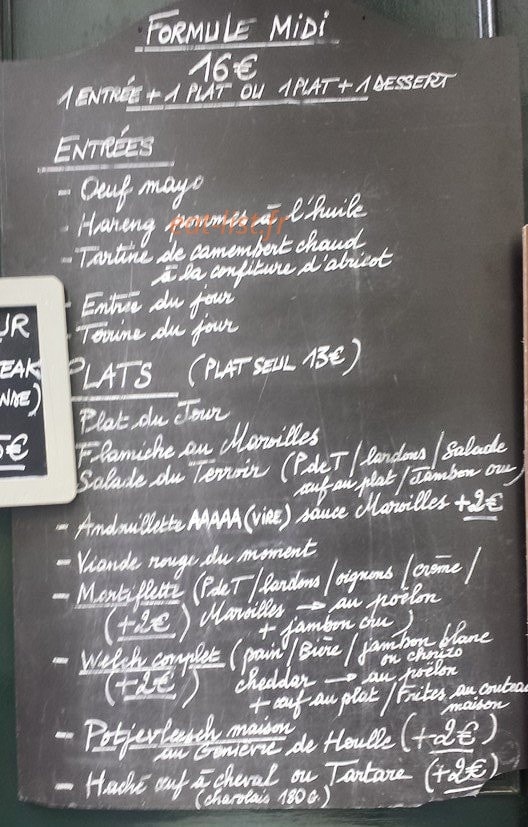 FORMULE MIDI
16€
1 ENTRÉE + 1 PLAT OU 1 PLAT + 1 DESSERT
ENTRÉES
- Oeuf mayo
- Hareng pommes à l'huile
eat-list.fr
- Tartine de camembert chaud
à la confiture d'abricot
- Entrée du jour
- Terrine du jour
PLATS (PLAT SEUL 13€)
Plat du Jour
Flamiche au Maroilles
Salade du Terroir (PdeT / lardons / Salade
œuf au plat / Jambon cru)
- Andouillette AAAAA (VIRE) sauce Maroilles +2€
- Viande rouge du moment
- Martiflette (PdeT / lardons / oignons / crème /
(+2€) Maroilles → au poêlon
+ jambon cru)
- Welch complet (pain / Bière / jambon blanc
ou chorizo
(+2€) cheddar → au poêlon
+ œuf au plat / Frites au couteau
maison
- Potjevleesch maison
au Genièvre de Houlle (+2€)
- Haché œuf à cheval ou Tartare (+2€)
(charolais 180 G.)
UR
EAK
NDE)
5€